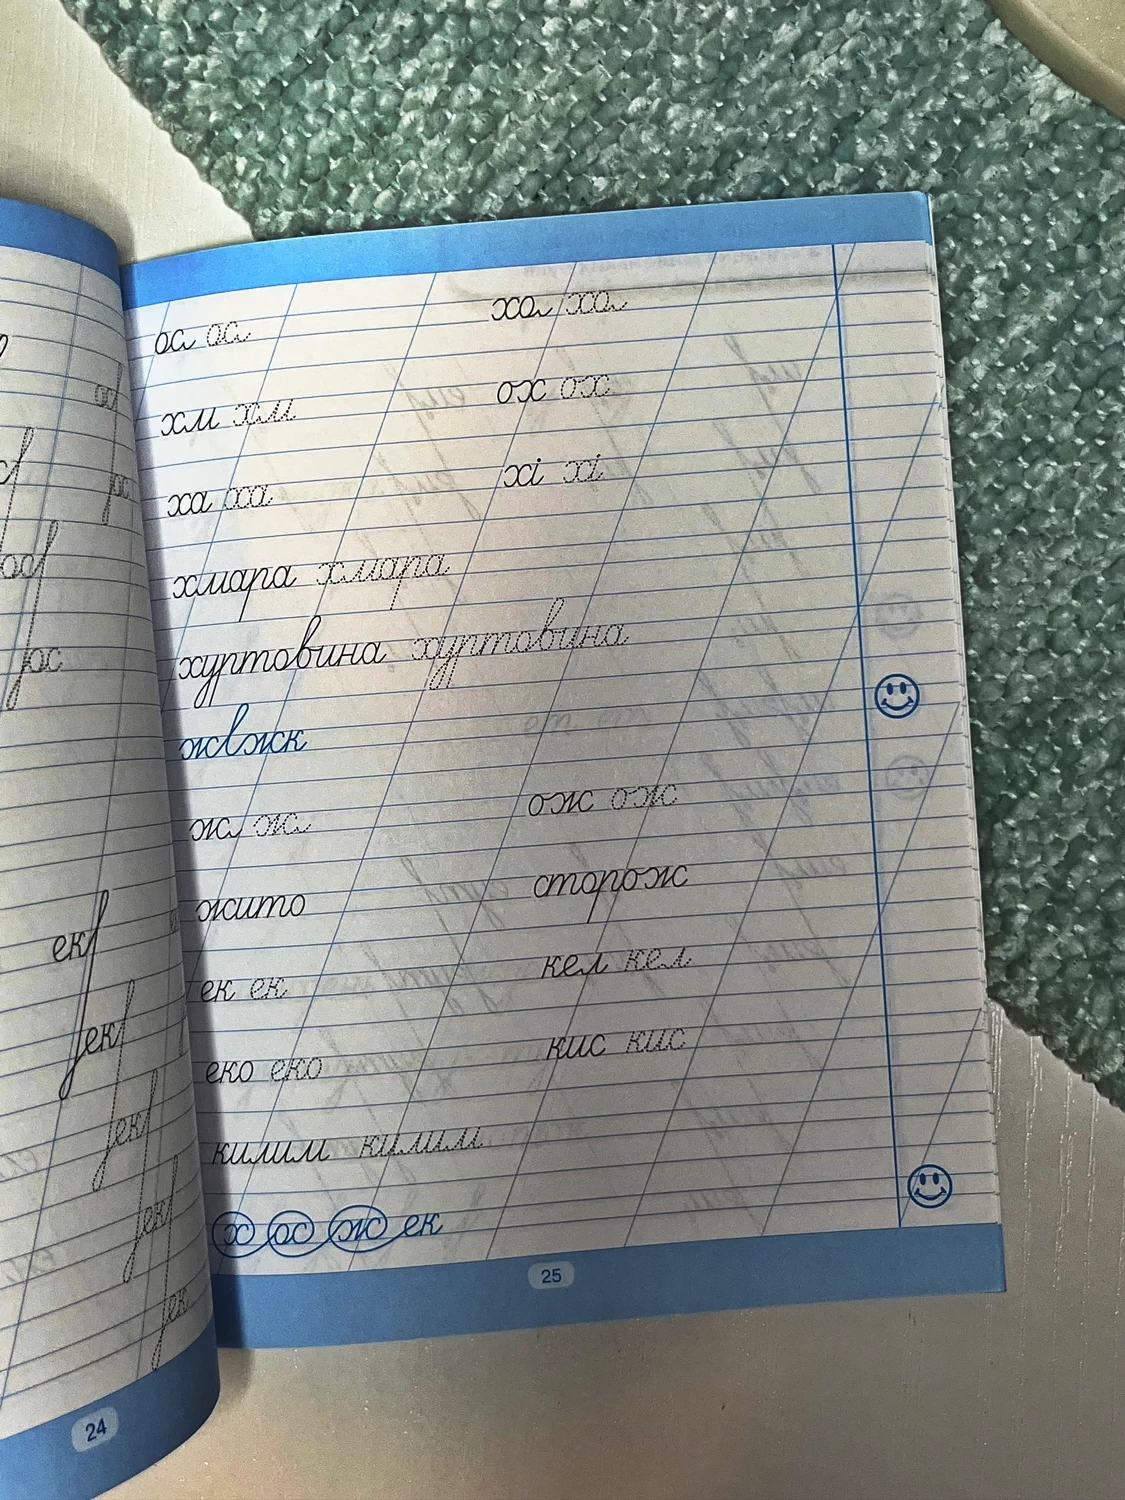 ос ос
хо хо
хм хм
ох ох
ха ха
хі хі
хмара хмара
хуртовина хуртовина
ж ж
ож ож
жито
сторож
ек ек
кел кел
еко еко
кис кис
килим килим
х ос ж ек
25
ос
ос
ек
ек
ек
ек
ек
24